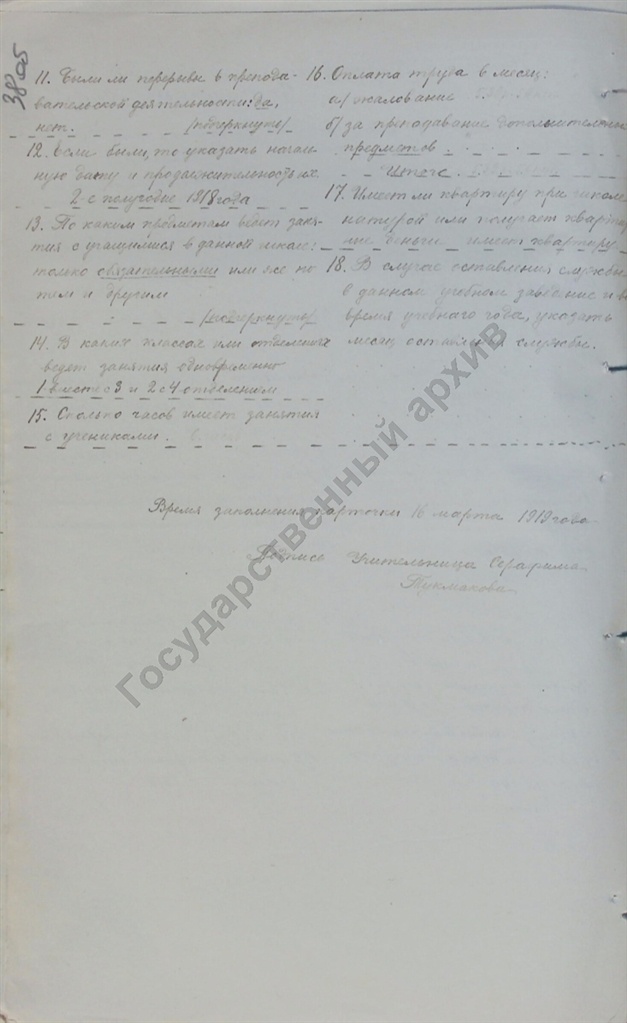 38об
11. Были ли перерывы в препода-
вательской деятельности: да,
нет. /подчеркнуть/
12. Если были, то указать началь-
ную дату и продолжительность их
2-е полугодие 1918 года
13. По каким предметам ведет заня-
тия с учащимися в данной школе:
только обязательными или же по
тем и другим
/подчеркнуть/
14. В каких классах или отделениях
ведет занятия одновременно
1 вместе с 3 и 2 с 4 отделением
15. Сколько часов имеет занятия
с учениками.
16. Оплата труда в месяц:
а/ жалование
б/ за преподавание дополнительных
предметов
Итого
17. Имеет ли квартиру при
или получает квартир
ные деньги имеет квартиру
18. В случае оставления службы
в данном учебном заведение и во
время учебнаго года, указать
месяц оставления службы.
Время заполнения карточки 16 марта 1919 года
Подпись Учительница Серафима
Тукмакова
Государственный архив